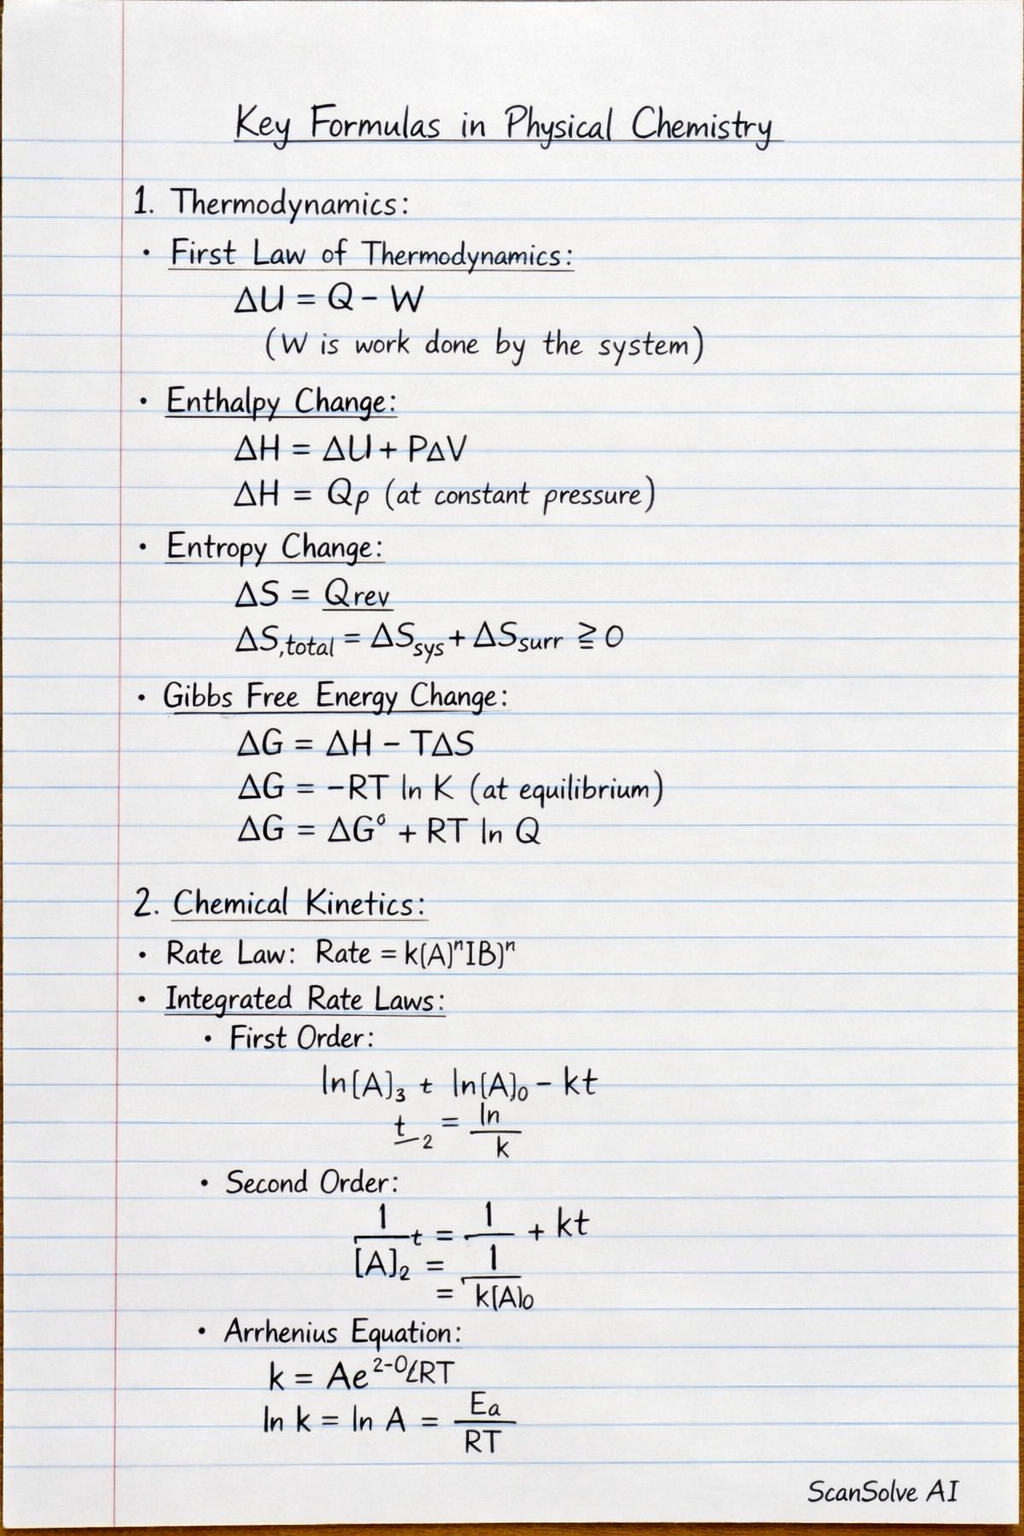 Key Formulas in Physical Chemistry
1. Thermodynamics:
• First Law of Thermodynamics:
ΔU = Q - W
(W is work done by the system)
• Enthalpy Change:
ΔH = ΔU + PΔV
ΔH = Qp (at constant pressure)
• Entropy Change:
ΔS = Qrev
ΔS,total = ΔSsys + ΔSsurr ≧ 0
• Gibbs Free Energy Change:
ΔG = ΔH - TΔS
ΔG = -RT ln K (at equilibrium)
ΔG = ΔG° + RT ln Q
2. Chemical Kinetics:
• Rate Law: Rate = k(A)ⁿIB)ⁿ
• Integrated Rate Laws:
• First Order:
ln[A]₃ t ln[A]₀ - kt
t_2 = ln
k
• Second Order:
1 t = 1 + kt
[A]₂ = 1
= k[A]₀
• Arrhenius Equation:
k = Ae²⁻⁰∠RT
ln k = ln A = Ea
RT
ScanSolve AI